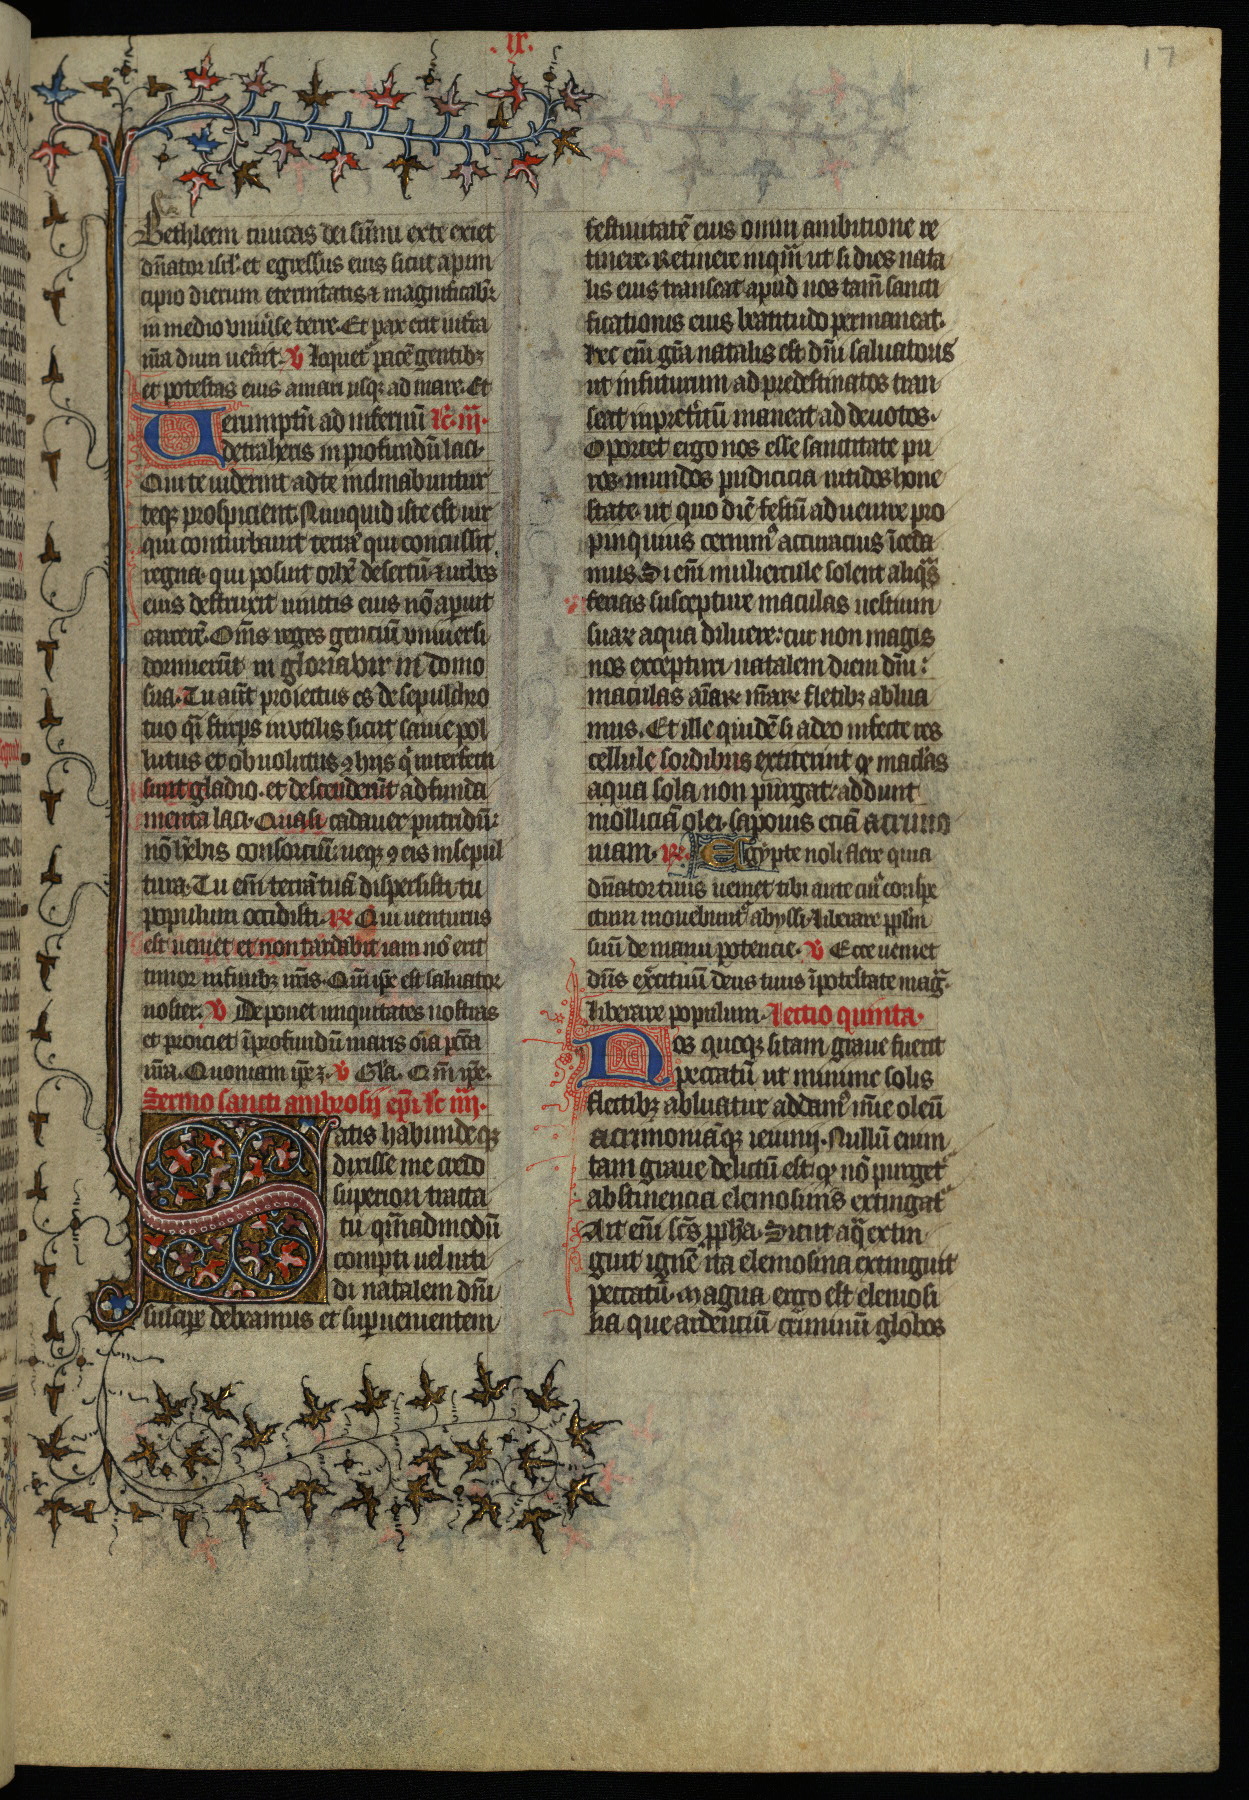 .ix.
17
Bethleem ciuitas dei sūmi exte exiet
dn̄ator isrl̄ et egressus eius sicut apun
cipio dierum eternitatis ⁊ magnificabit̉
in medio vniūse terre. Et pax erit in tr̄a
nr̄a dum uen̄it. v̄ loquet̉ pacē gentibꝫ
et potestas eius amari usqꝫ ad mare. Et
Uerumptn̄ ad infernū lc̄. iij.
detraheris in profundū laci.
Qui te uiderint adte inclinabuntur
teqꝫ prospicient. Nunquid iste est uir
qui conturbauit terrā qui concussit
regna. qui posuit orbē desertū ⁊ urbes
eius destruxit uinctis eius nō apuit
carcerē. Om̄s reges genciū vniuersi
dormierūt in gloria vir in domo
sua. Tu aūt proiectus es de sepulchro
tuo q̄i stirps invtilis sicut sanie pol
lutus et obuolutus ꝯ hiis q̄ interfecti
sunt gladio. et descenderūt ad funda
menta laci. Quasi cadauer putridū.
nō h̄ebis consorciū. neqꝫ ꝯ eis in sepul
tura. Tu em̄ terrā tuā dispersisti. tu
populum occidisti. R̄ Qui uenturus
est ueniet et non tardabit iam nō erit
timor in finibꝫ nr̄is. Qm̄ ip̄e est saluator
noster. v̄ Deponet iniquitates nostras
et proiciet ī profundū maris oīa pc̄cā
nr̄a. Quoniam ip̄e ꝫ. v̄ Gl̄a. Qm̄ ip̄e.
Sermo sancti ambrosij ep̄i lc̄ iiij.
Satis habundeqꝫ
dixisse me credo
superiori tracta
tu quēadmodū
compti uel niti
di natalem dn̄i
suscipe debeamus et supuenientem
festiuitatē eius omni ambitione re
tinere. Retinere inquā ut si dies nata
lis eius transeat apud nos tam̄ sancti
ficationis eius beatitudo permaneat.
Hec em̄ gr̄a natalis est dn̄i saluatoris
ut in futurum ad predestinatos tran
seat in pret̄itū maneat ad deuotos.
Oportet ergo nos esse sanctitate pu
ros. mundos pudicicia nitidos hone
state. ut quo diē festū aduenire pro
pinquius cernim̉ accuracius īceda
mus. Si em̄ muliercule solent aliq̄s
ferias suscepture maculas uestium
suaꝝ aqua diluere. cur non magis
nos excepturi natalem diem dn̄i
maculas aīaꝝ nr̄aꝝ fletibꝫ ablua
mus. Et ille quidē si adeo infecte res
cellule sordibus extiterint qꝫ maclās
aqua sola non purgat. addunt
molliciā olei. saponis eciā acrimo
niam. R̄ Egypte noli flere quia
dn̄ator tuus ueniet tibi ante cuỉ consp̄c
ctum mouebunt̉ abyssi. liberare pp̄lm̄
suū de manu potencie. v̄ Ecce ueniet
dn̄s ex̄cituū deus tuus ī potestate maḡ.
liberare populum. lectio quinta.
Nos quoqꝫ si tam graue fuerit
peccatū ut minime solis
flectibꝫ abluatur addam̉ m̄ie oleū
acrimoniāqꝫ ieiunij. Nullū enim
tam graue delictū est qꝫ nō purget
abstinencia elemosina extingat̉
Ait em̄ sc̄s ꝓph̄a. Sicut aq̄ extin
guit ignē ita elemosina extinguit
peccatū. Magna ergo est elemosi
na que ardenciū criminū globos